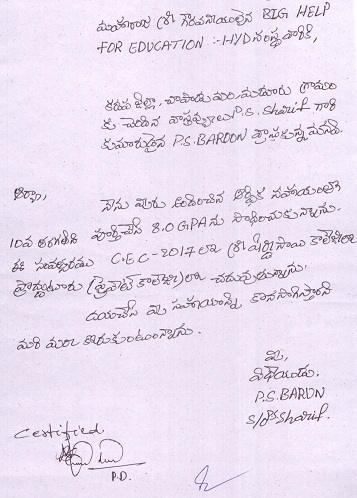 మహారాజ శ్రీ గౌరవనీయులైన BIG HELP
FOR EDUCATION :- HYD సంస్థ వారికి,
కడప జిల్లా, చాపాడు మం. మదూరు గ్రామం
కు చెందిన వాస్తవ్యులు P.S. Sharif గారి
కుమారుడైన P.S. BAROON వ్రాసుకున్న మనవి.
ఆర్యా,
నేను మీరు అందించిన ఆర్థిక సహాయంతో
10వ తరగతి పూర్తిచేసి 8.0 GPA ను సాధించుకున్నాను.
ఈ సంవత్సరము C.E.C - 2017 లో శ్రీ షిర్డి సాయి కాలేజీలో
ప్రొద్దుటూరు (ప్రైవేట్ కాలేజి) లో చదువుతున్నాను.
దయచేసి మీ సహాయాన్ని కొనసాగిస్తారని
మరీ మరీ కోరుకుంటున్నాను.
మీ,
విధేయుడు.
P.S. BARUN
S/o P.S Sharif.
Certified.
P.D.